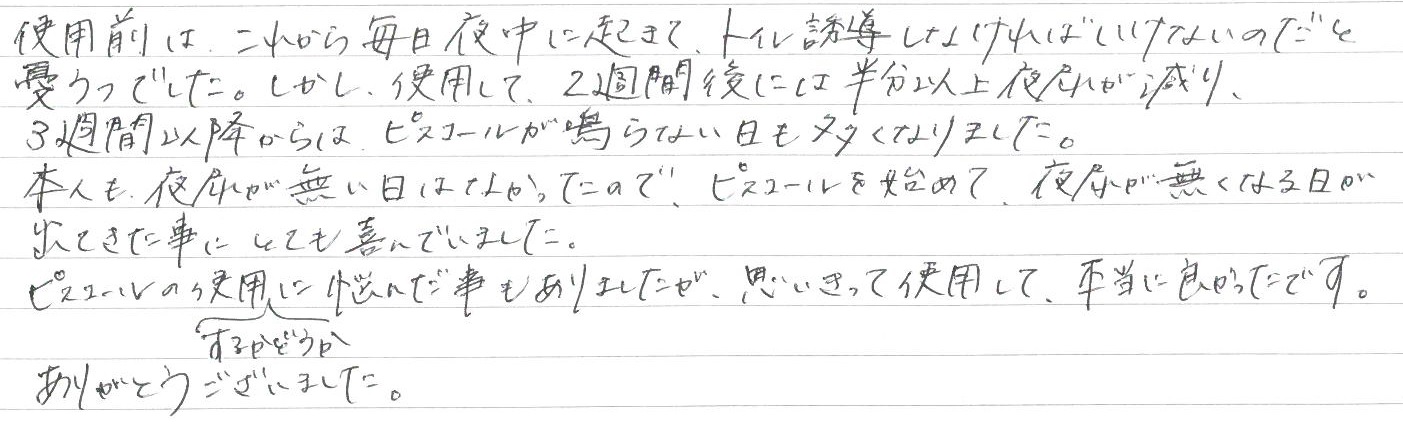 使用前は、これから毎日夜中に起きて、トイレ誘導しなければいけないのだと
憂うつでした。しかし、使用して、2週間後には半分以上夜尿が減り、
3週間以降からは、ピスコールが鳴らない日も多くなりました。
本人も、夜尿が無い日はなかったので、ピスコールを始めて、夜尿が無くなる日が
出てきた事にとても喜んでいました。
ピスコールの使用に悩んだ事もありましたが、思いきって使用して、本当に良かったです。
するかどうか
ありがとうございました。